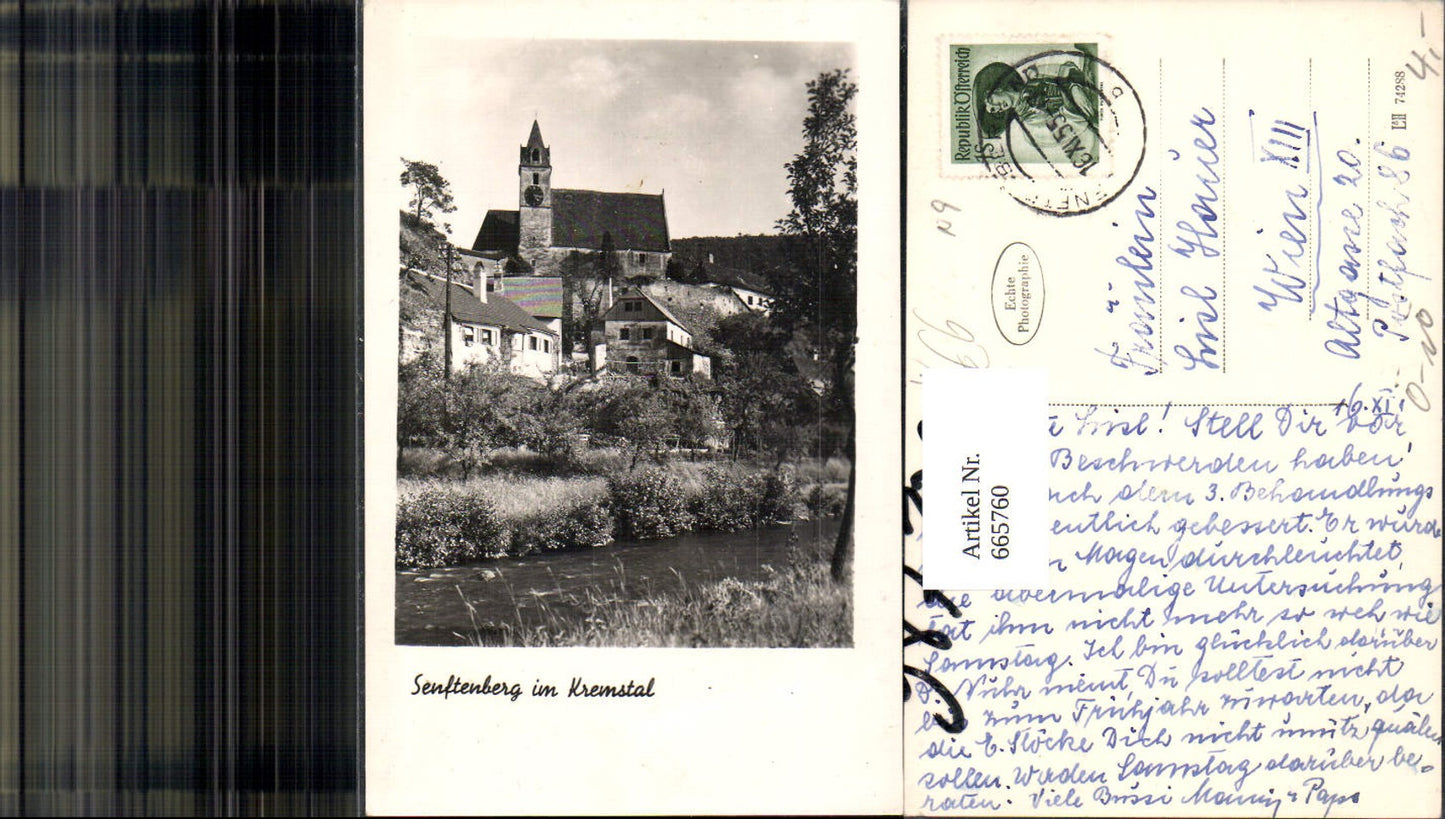 Senftenberg im Kremstal
Republik Österreich
16.XI.55
Echte
Photographie
N9
66
4,-
74288
Fräulein
Liesl Hauer
Wien XIII
Altgasse 20.
Postfach 86
0-10
Artikel Nr.
665760
16.XI.
Liesl! Stell Dir vor,
Beschwerden haben
nach dem 3. Behandlungs
gebessert. Er wurde
Magen durchleuchtet,
die abermalige Untersuchung
tat ihm nicht mehr so weh wie
Samstag. Ich bin glücklich darüber
meint, Du solltest nicht
bis zum Frühjahr zuwarten, da
die E. Stöcke Dich nicht unnütz quälen
sollen. Werden Samstag darüber be-
raten. Viele Bussi Mammi u Papa